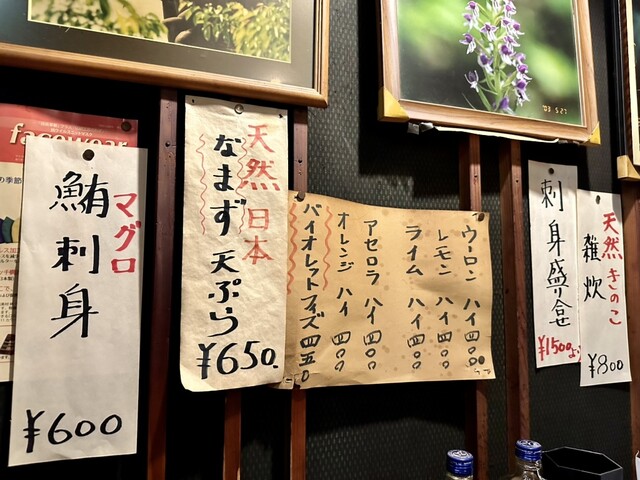 facewear
マグロ
鮪刺身
¥600
天然日本
なまず天ぷら
¥650.
ウーロンハイ 四〇〇
レモンハイ 四〇〇
ライムハイ 四〇〇
アセロラハイ 四〇〇
オレンジハイ 四〇〇
バイオレットフィズ 四五〇
刺身盛合せ
¥1500より
天然きのこ
雑炊
¥800
'03 5.27